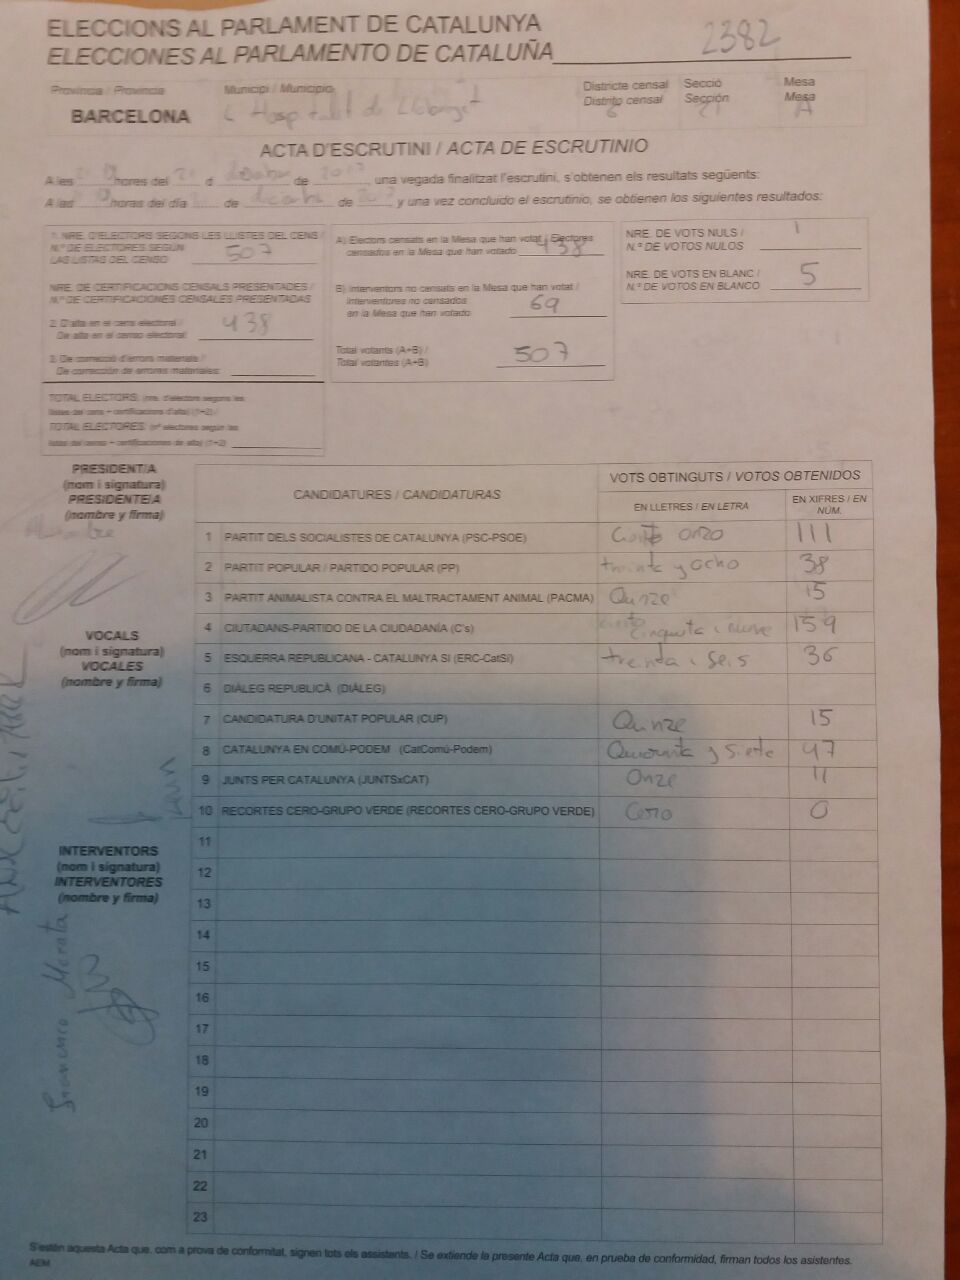 ELECCIONS AL PARLAMENT DE CATALUNYA
ELECCIONES AL PARLAMENTO DE CATALUÑA 2382
Província / Provincia
BARCELONA
Municipi / Municipio
L'Hospitalet de Llobregat
Districte censal
Distrito censal
6
Secció
Sección
Mesa
Mesa
A
ACTA D'ESCRUTINI / ACTA DE ESCRUTINIO
A les hores del 21 d de 2017, una vegada finalitzat l'escrutini, s'obtenen els resultats següents:
A las horas del día de de y una vez concluido el escrutinio, se obtienen los siguientes resultados:
1. NRE. D'ELECTORS SEGONS LES LLISTES DEL CENS /
N.º DE ELECTORES SEGÚN
LAS LISTAS DEL CENSO 507
NRE. DE CERTIFICACIONS CENSALS PRESENTADES /
N.º DE CERTIFICACIONES CENSALES PRESENTADAS
2. D'alta en el cens electoral /
De alta en el censo electoral: 438
3. De correcció d'errors materials /
De corrección de errores materiales:
TOTAL ELECTORS: (nre. d'electors segons les
llistes del cens + certificacions d'alta) (1+2) /
TOTAL ELECTORES: (nº electores según las
listas del censo + certificaciones de alta) (1+2)
A) Electors censats en la Mesa que han votat / Electores
censados en la Mesa que han votado 438
B) Interventors no censats en la Mesa que han votat /
Interventores no censados
en la Mesa que han votado 69
Total votants (A+B) /
Total votantes (A+B) 507
NRE. DE VOTS NULS /
N.º DE VOTOS NULOS 1
NRE. DE VOTS EN BLANC /
N.º DE VOTOS EN BLANCO 5
PRESIDENT/A
(nom i signatura)
PRESIDENTE/A
(nombre y firma)
VOCALS
(nom i signatura)
VOCALES
(nombre y firma)
INTERVENTORS
(nom i signatura)
INTERVENTORES
(nombre y firma)
Francisco Morata
CANDIDATURES / CANDIDATURAS
VOTS OBTINGUTS / VOTOS OBTENIDOS
EN LLETRES / EN LETRA
EN XIFRES / EN NÚM.
1 PARTIT DELS SOCIALISTES DE CATALUNYA (PSC-PSOE) Ciento onze 111
2 PARTIT POPULAR / PARTIDO POPULAR (PP) treinta y ocho 38
3 PARTIT ANIMALISTA CONTRA EL MALTRACTAMENT ANIMAL (PACMA) Quinze 15
4 CIUTADANS-PARTIDO DE LA CIUDADANÍA (C's) ciento cinquenta i nueve 159
5 ESQUERRA REPUBLICANA - CATALUNYA SÍ (ERC-CatSí) treinta i seis 36
6 DIÀLEG REPUBLICÀ (DIÀLEG)
7 CANDIDATURA D'UNITAT POPULAR (CUP) Quinze 15
8 CATALUNYA EN COMÚ-PODEM (CatComú-Podem) Quarenta y siete 47
9 JUNTS PER CATALUNYA (JUNTSxCAT) Onze 11
10 RECORTES CERO-GRUPO VERDE (RECORTES CERO-GRUPO VERDE) Cero 0
11
12
13
14
15
16
17
18
19
20
21
22
23
S'estén aquesta Acta que, com a prova de conformitat, signen tots els assistents. / Se extiende la presente Acta que, en prueba de conformidad, firman todos los asistentes.
AEM